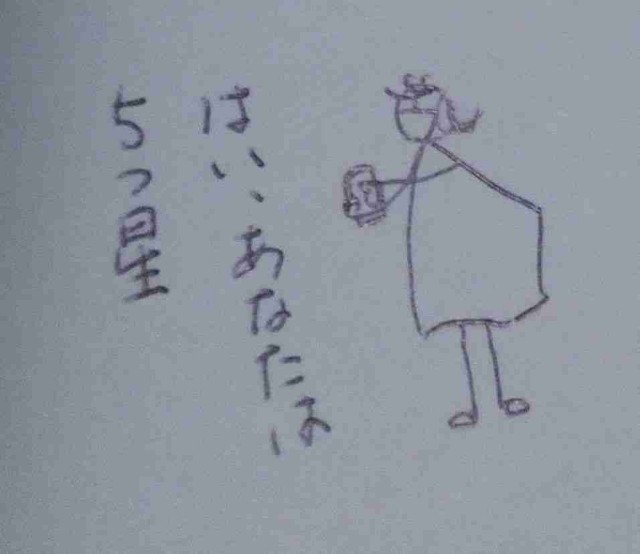 はい、あなたは
5つ星